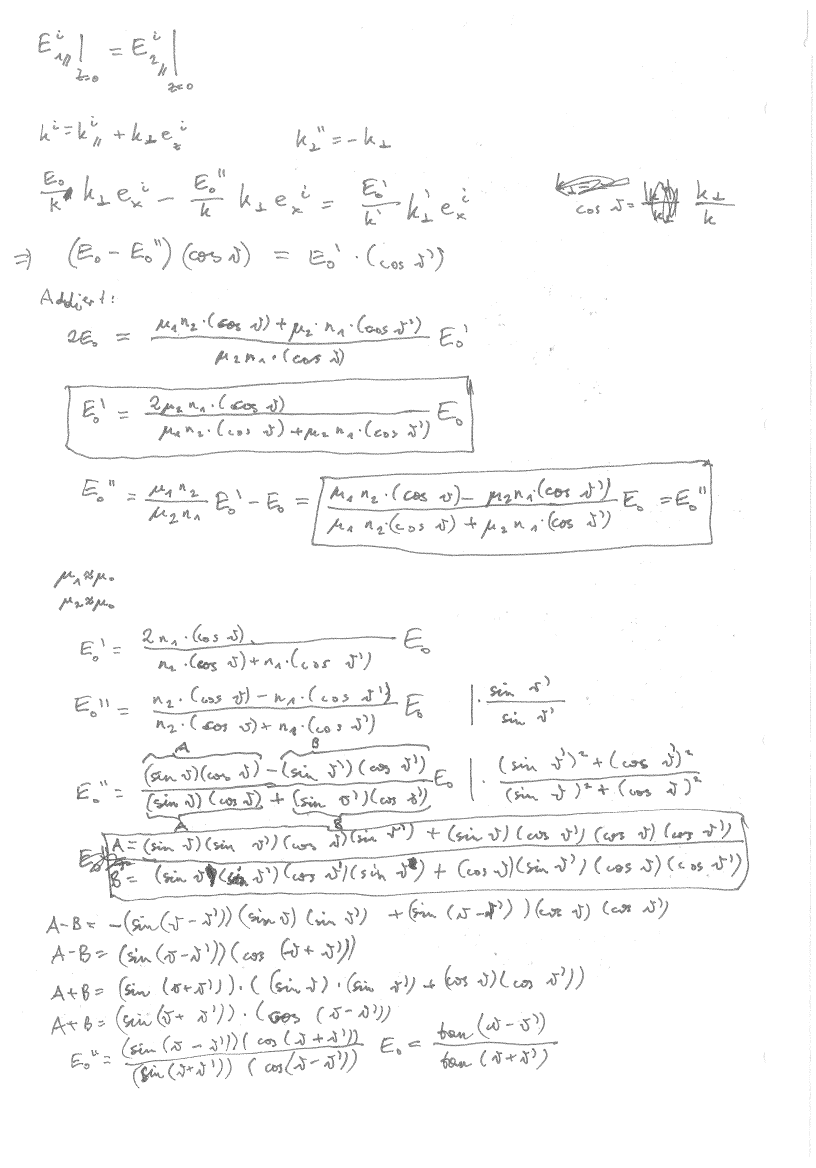 E^i_{1//}|_{z=0} = E^i_{2//}|_{z=0}
k^i = k^i_{//} + k_⊥ e^i_z    k_⊥'' = -k_⊥
E₀/k k_⊥ e_x^i - E₀''/k k_⊥ e_x^i = E₀'/k' k_⊥' e_x^i    cos ϑ = k_⊥/k
⇒ (E₀ - E₀'')(cos ϑ) = E₀' · (cos ϑ')
Addiert:
2E₀ = (μ₁n₂·(cos ϑ) + μ₂·n₁·(cos ϑ'))/(μ₂n₁·(cos ϑ)) E₀'
E₀' = (2μ₂n₁·(cos ϑ))/(μ₁n₂·(cos ϑ) + μ₂n₁·(cos ϑ')) E₀
E₀'' = (μ₁n₂)/(μ₂n₁) E₀' - E₀ = (μ₁n₂·(cos ϑ) - μ₂n₁·(cos ϑ'))/(μ₁n₂·(cos ϑ) + μ₂n₁·(cos ϑ')) E₀ = E₀''
μ₁≈μ₀
μ₂≈μ₀
E₀' = (2n₁·(cos ϑ))/(n₂·(cos ϑ) + n₁·(cos ϑ')) E₀
E₀'' = (n₂·(cos ϑ) - n₁·(cos ϑ'))/(n₂·(cos ϑ) + n₁·(cos ϑ')) E₀    | · (sin ϑ')/(sin ϑ')
A B
E₀'' = ((sin ϑ)(cos ϑ) - (sin ϑ')(cos ϑ'))/((sin ϑ)(cos ϑ) + (sin ϑ')(cos ϑ')) E₀    | · ((sin ϑ')² + (cos ϑ')²)/((sin ϑ)² + (cos ϑ)²)
A B
A = (sin ϑ)(sin ϑ')(cos ϑ)(sin ϑ') + (sin ϑ)(cos ϑ')(cos ϑ)(cos ϑ')
B = (sin ϑ)(sin ϑ')(cos ϑ')(sin ϑ) + (cos ϑ)(sin ϑ')(cos ϑ)(cos ϑ')
A-B = -(sin(ϑ-ϑ'))(sin ϑ)(sin ϑ') + (sin(ϑ-ϑ'))(cos ϑ)(cos ϑ')
A-B = (sin(ϑ-ϑ'))(cos(ϑ+ϑ'))
A+B = (sin(ϑ+ϑ'))·((sin ϑ)·(sin ϑ') + (cos ϑ)(cos ϑ'))
A+B = (sin(ϑ+ϑ'))·(cos(ϑ-ϑ'))
E₀'' = ((sin(ϑ-ϑ'))(cos(ϑ+ϑ')))/((sin(ϑ+ϑ'))(cos(ϑ-ϑ'))) E₀ = (tan(ϑ-ϑ'))/(tan(ϑ+ϑ'))